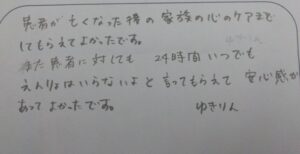 患者が亡くなった後の家族の心のケアまで
してもらえてよかったです。
また患者に対しても 24時間いつでも
えんりょはいらないよと言ってもらえて 安心感が
あってよかったです。
ゆきりん